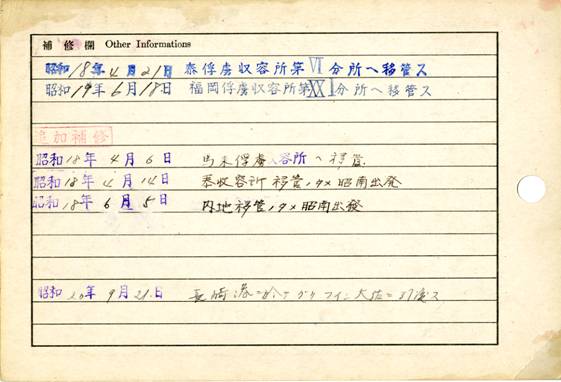 補修欄 Other Informations
昭和18年4月21日 泰俘虜収容所第VI分所ヘ移管ス
昭和19年6月18日 福岡俘虜収容所第XXI分所ヘ移管ス
追加補修
昭和18年4月6日 馬来俘虜収容所ヘ移管
昭和18年4月14日 泰収容所移管ノタメ昭南出発
昭和18年6月5日 内地移管ノタメ昭南出發
昭和20年9月21日 長崎港ニ於テ 大佐ニ引渡ス